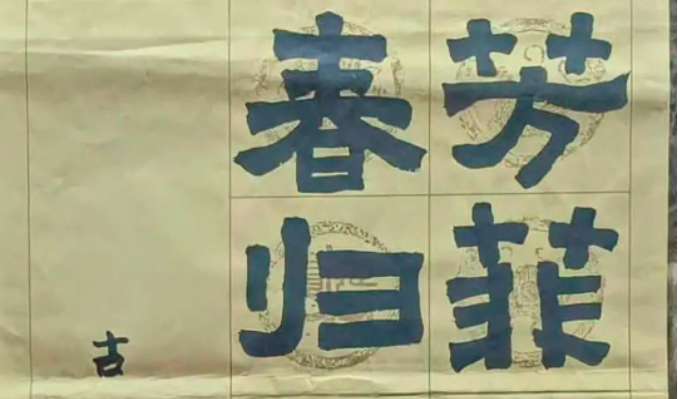 芳菲
春归
古